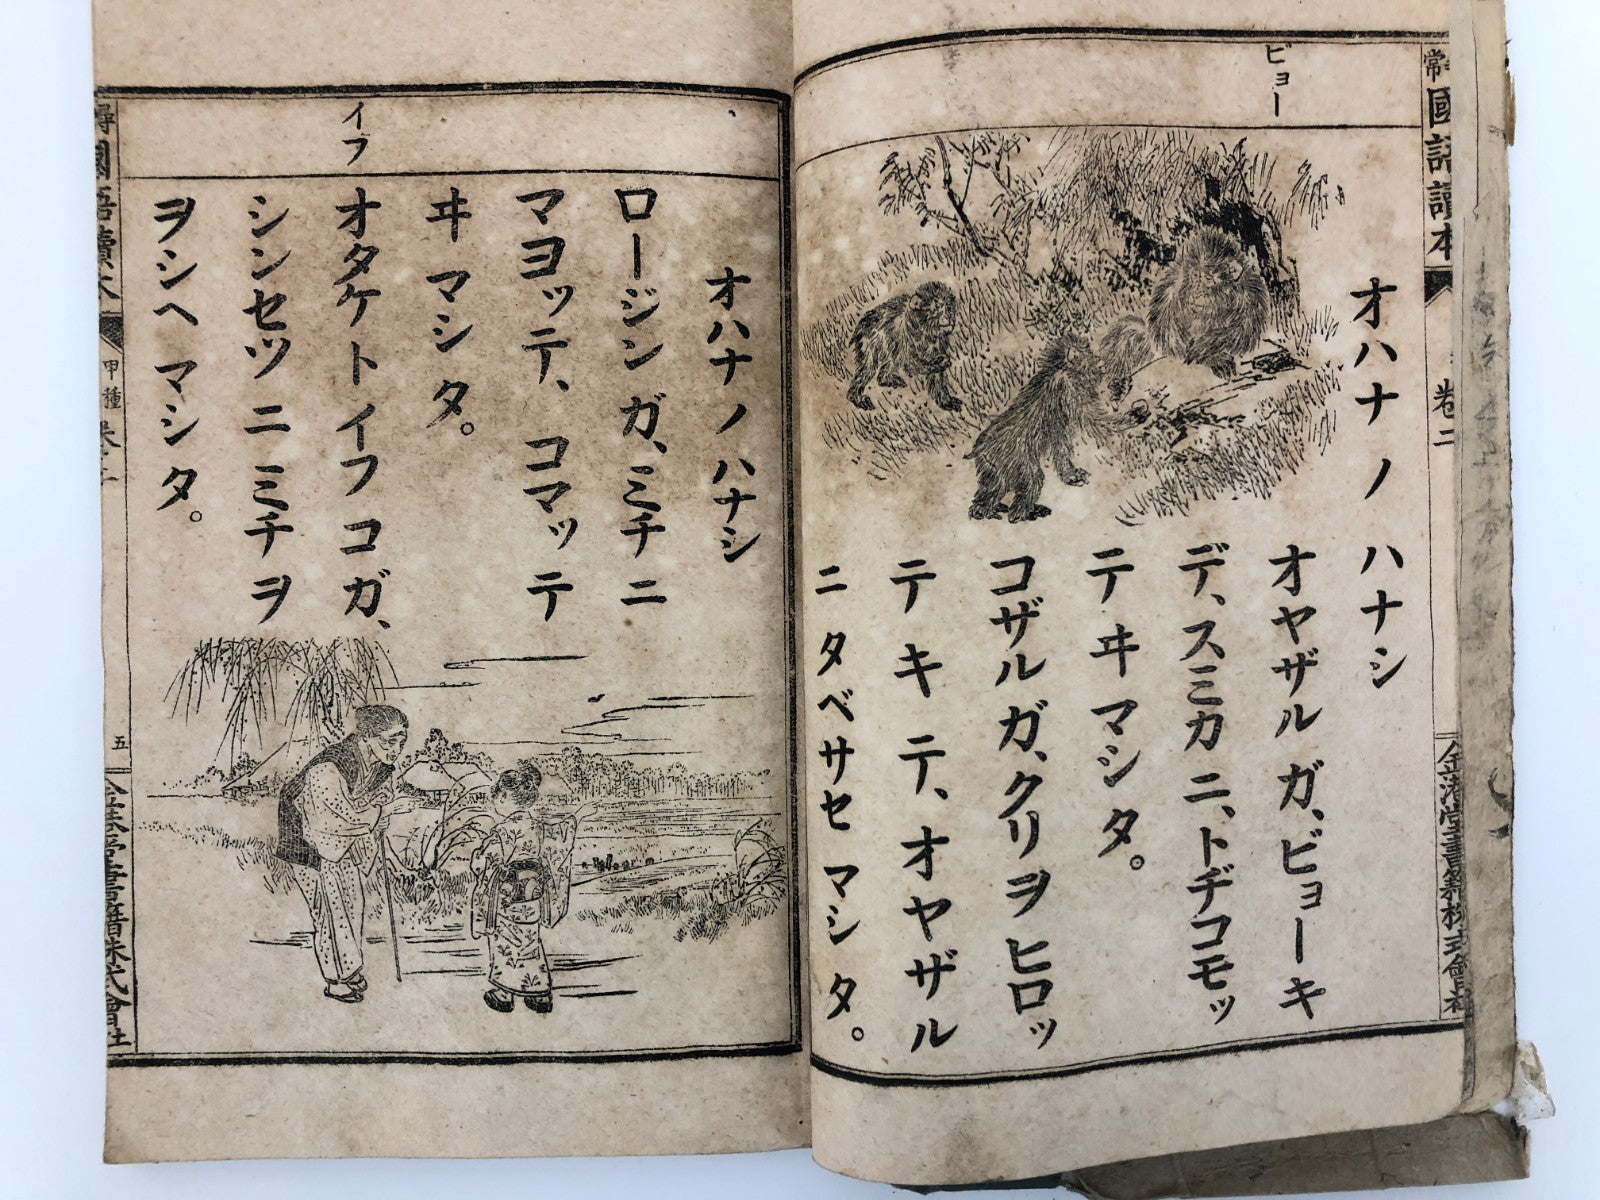 常國語讀本
卷二
金港堂書籍株式會社
ビョー
オハナノ ハナシ
オヤザルガ、ビョーキ
デ、スミカニ、トヂコモッ
テヰマシタ。
コザルガ、クリヲヒロッ
テキテ、オヤザル
ニタベサセマシタ。
イフ
オハナノハナシ
ロージンガ、ミチニ
マヨッテ、コマッテ
ヰマシタ。
オタケトイフコガ、
シンセツニミチヲ
ヲシヘマシタ。
尋國語讀本
甲種 卷二
五
金港堂書籍株式會社